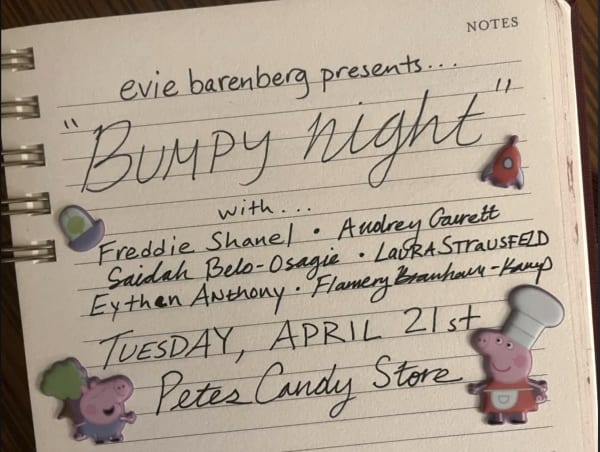 NOTES
evie barenberg presents...
"BUMPY night"
with...
Freddie Shanel • Audrey Garrett
Saidah Belo-Osagie • LAURA STRAUSFELD
Eythan Anthony • Flamery
TUESDAY, APRIL 21st
Petes Candy Store